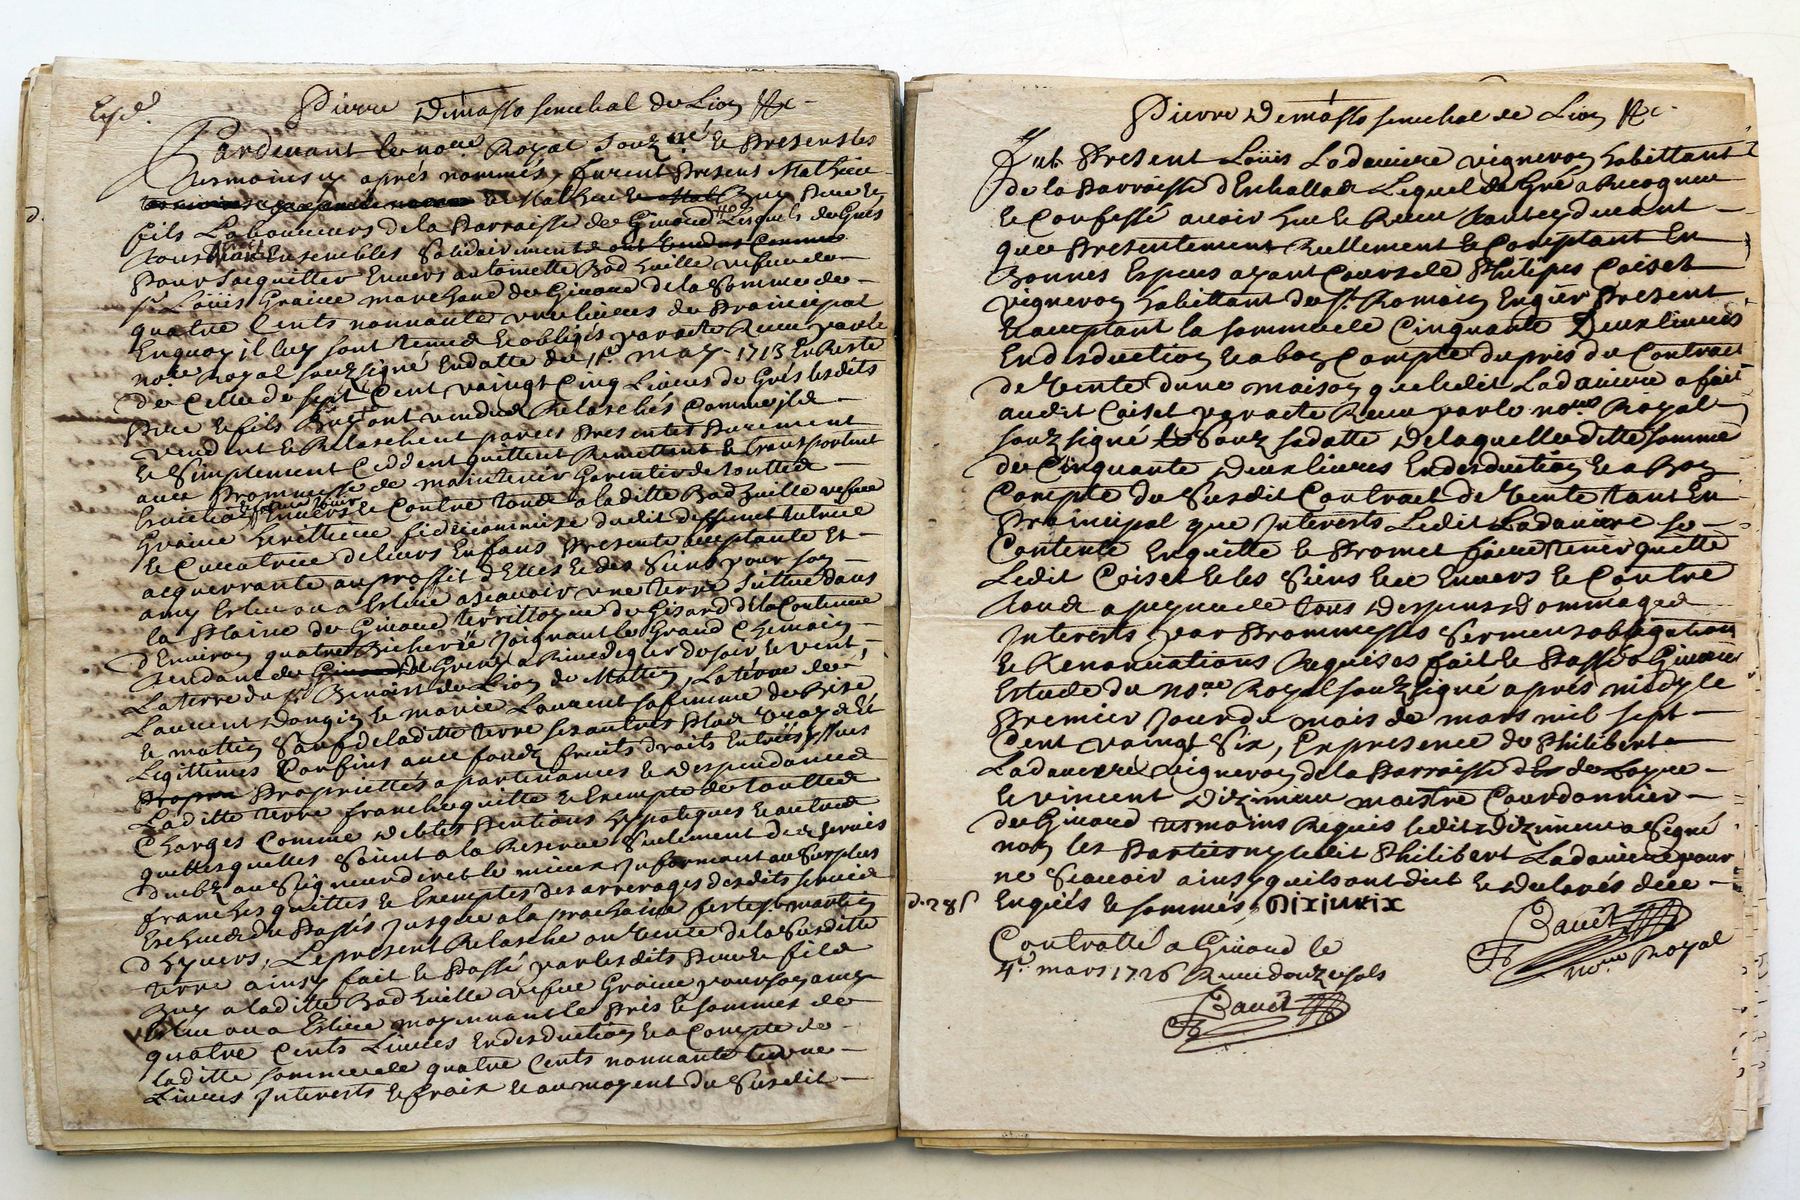 Exp.d
Pierre Demasso senechal de Lion &c
Pardevant le no.re Royal souz.né & Presens les
Temoins cy après nommés, furent Present Mathieu
fils Laboureurs de la Parroisse de Givord Lesquels de Grés
tous deux Ensembles Solidairement
Pour sacquitter Envers antoinette Bad huille vefue de
s.r Loüis Graine marchand de Givord de la somme de
quatre Cents nonnante une livres de Principal
Enquoy il luy sont tenus & obligés par acte Reçu par le
no.re Royal souzsigné Endatte du may 1713 En Reste
de Celle de sept Cent vaingt Cinq Livres de Grés lesdits
Pere & fils Buy ont vendus Relaschés Comme ilz
vendent & Relaschent par ces Presentes Purement
& Simplement Ceddent quittent Remettent & transportent
avec Promesse de maintenir Garentir de touttes
Envers & Contre tous a laditte Bad huille vefue
Graine herittiere fideicommise dudit deffunct tutrice
& Curatrice de leurs Enfans Presente acceptante &
acquerrante au proffit d'Elles & des Siens pour son
amy Esleu ou a Eslire ascavoir une terre Scittue dans
la Plaine de Givord territtoire de Gizard de la Contenue
d'Environ quatre Bicherée Joignant le Grand Chemain
Tendant de Givord a Rivedegier du soir & vent,
La terre du s.r Benoist de Lion de Mattin, La terre de
Laurent Dongin & marie Laurent sa femme de Bize
& mattin Sauf de laditte terre ses autres Plus vray & &
Legittimes Confins avec fondz fruits droits Entrées yssues
Proprietés apartenances & despendances
Laditte terre franche quitte & Exempte de touttes
Charges Comme debtes Pentions hypotéques & autres
quelles quelles Soient a la Reserve Seulement des servis
dubz au Seigneur direct le mieux Informant au Surplus
franches quittes & Exemptes des arrerages desdits servis
Escheus du Passés Jusques a la prochaine feste st. martin
d'hyvers, Le present Relasche ou Vente de la Susditte
terre ainsy fait & Passé par lesdits Pere & fils
Buy a laditte Bad huille vefue Graine pour son amy
Esleu ou a Eslire moyennant le Prés & sommes de
quatre Cents Livres En desduction & a Compte de
laditte somme de quatre Cents nonnante une
Livres Interests & fraix & au moyent du Susdit
Pierre Demasso senechal de Lion &c
Fut Present Loüis Ladaviere vigneron habittant
de la Parroisse d'Echallas Lequel de Gré a Recogneu
& Confessé avoir heu & Reçu tant cy devant
que Presentement Reellement & Comptant En
Bonnes Espeçes ayant Cours de Philipes Coiset
vigneron habittant de st. Romain Engier Present
& acceptant la somme de Cinquante Deux livres
En desduction & a bon Compte du pris du Contract
de Vente dune maison que ledit Ladaviere a fait
audit Coiset par acte Reçu par le no.re Royal
souzsigné Souz sa datte De laquelle ditte somme
de Cinquante Deux livres En desduction & a Bon
Compte du Susdit Contract de Vente tant En
Prainipal que Interests Ledit Ladaviere se
Contente Enquitte & Promet faire tenir quitte
Ledit Coiset & les Siens Envers & Contre
tous a peyne de tous Despens Dommages
Interests par Promesses Serments obligations
& Renonciations Requises fait & Passé a Givord
Estude du no.re Royal souzsigné après midy le
Premier Jour du mois de mars mil sept
Cent vaingt Six, En presence de Philibert
Ladaviere Vigneron de la Parroisse de
& vincent Dizimieu maistre Courdonnier
de Givord temoins Requis ledit Dizimieu a Signé
non les Parties ny ledit Philibert Ladaviere pour
ne Scavoir ainsy quils ont dict & declarés de ce
Enquis & sommés. Dizimieix
Bauet
no.re Royal
Contrôllé a Givord le
4.e mars 1726 Reçu douze sols
Bauet